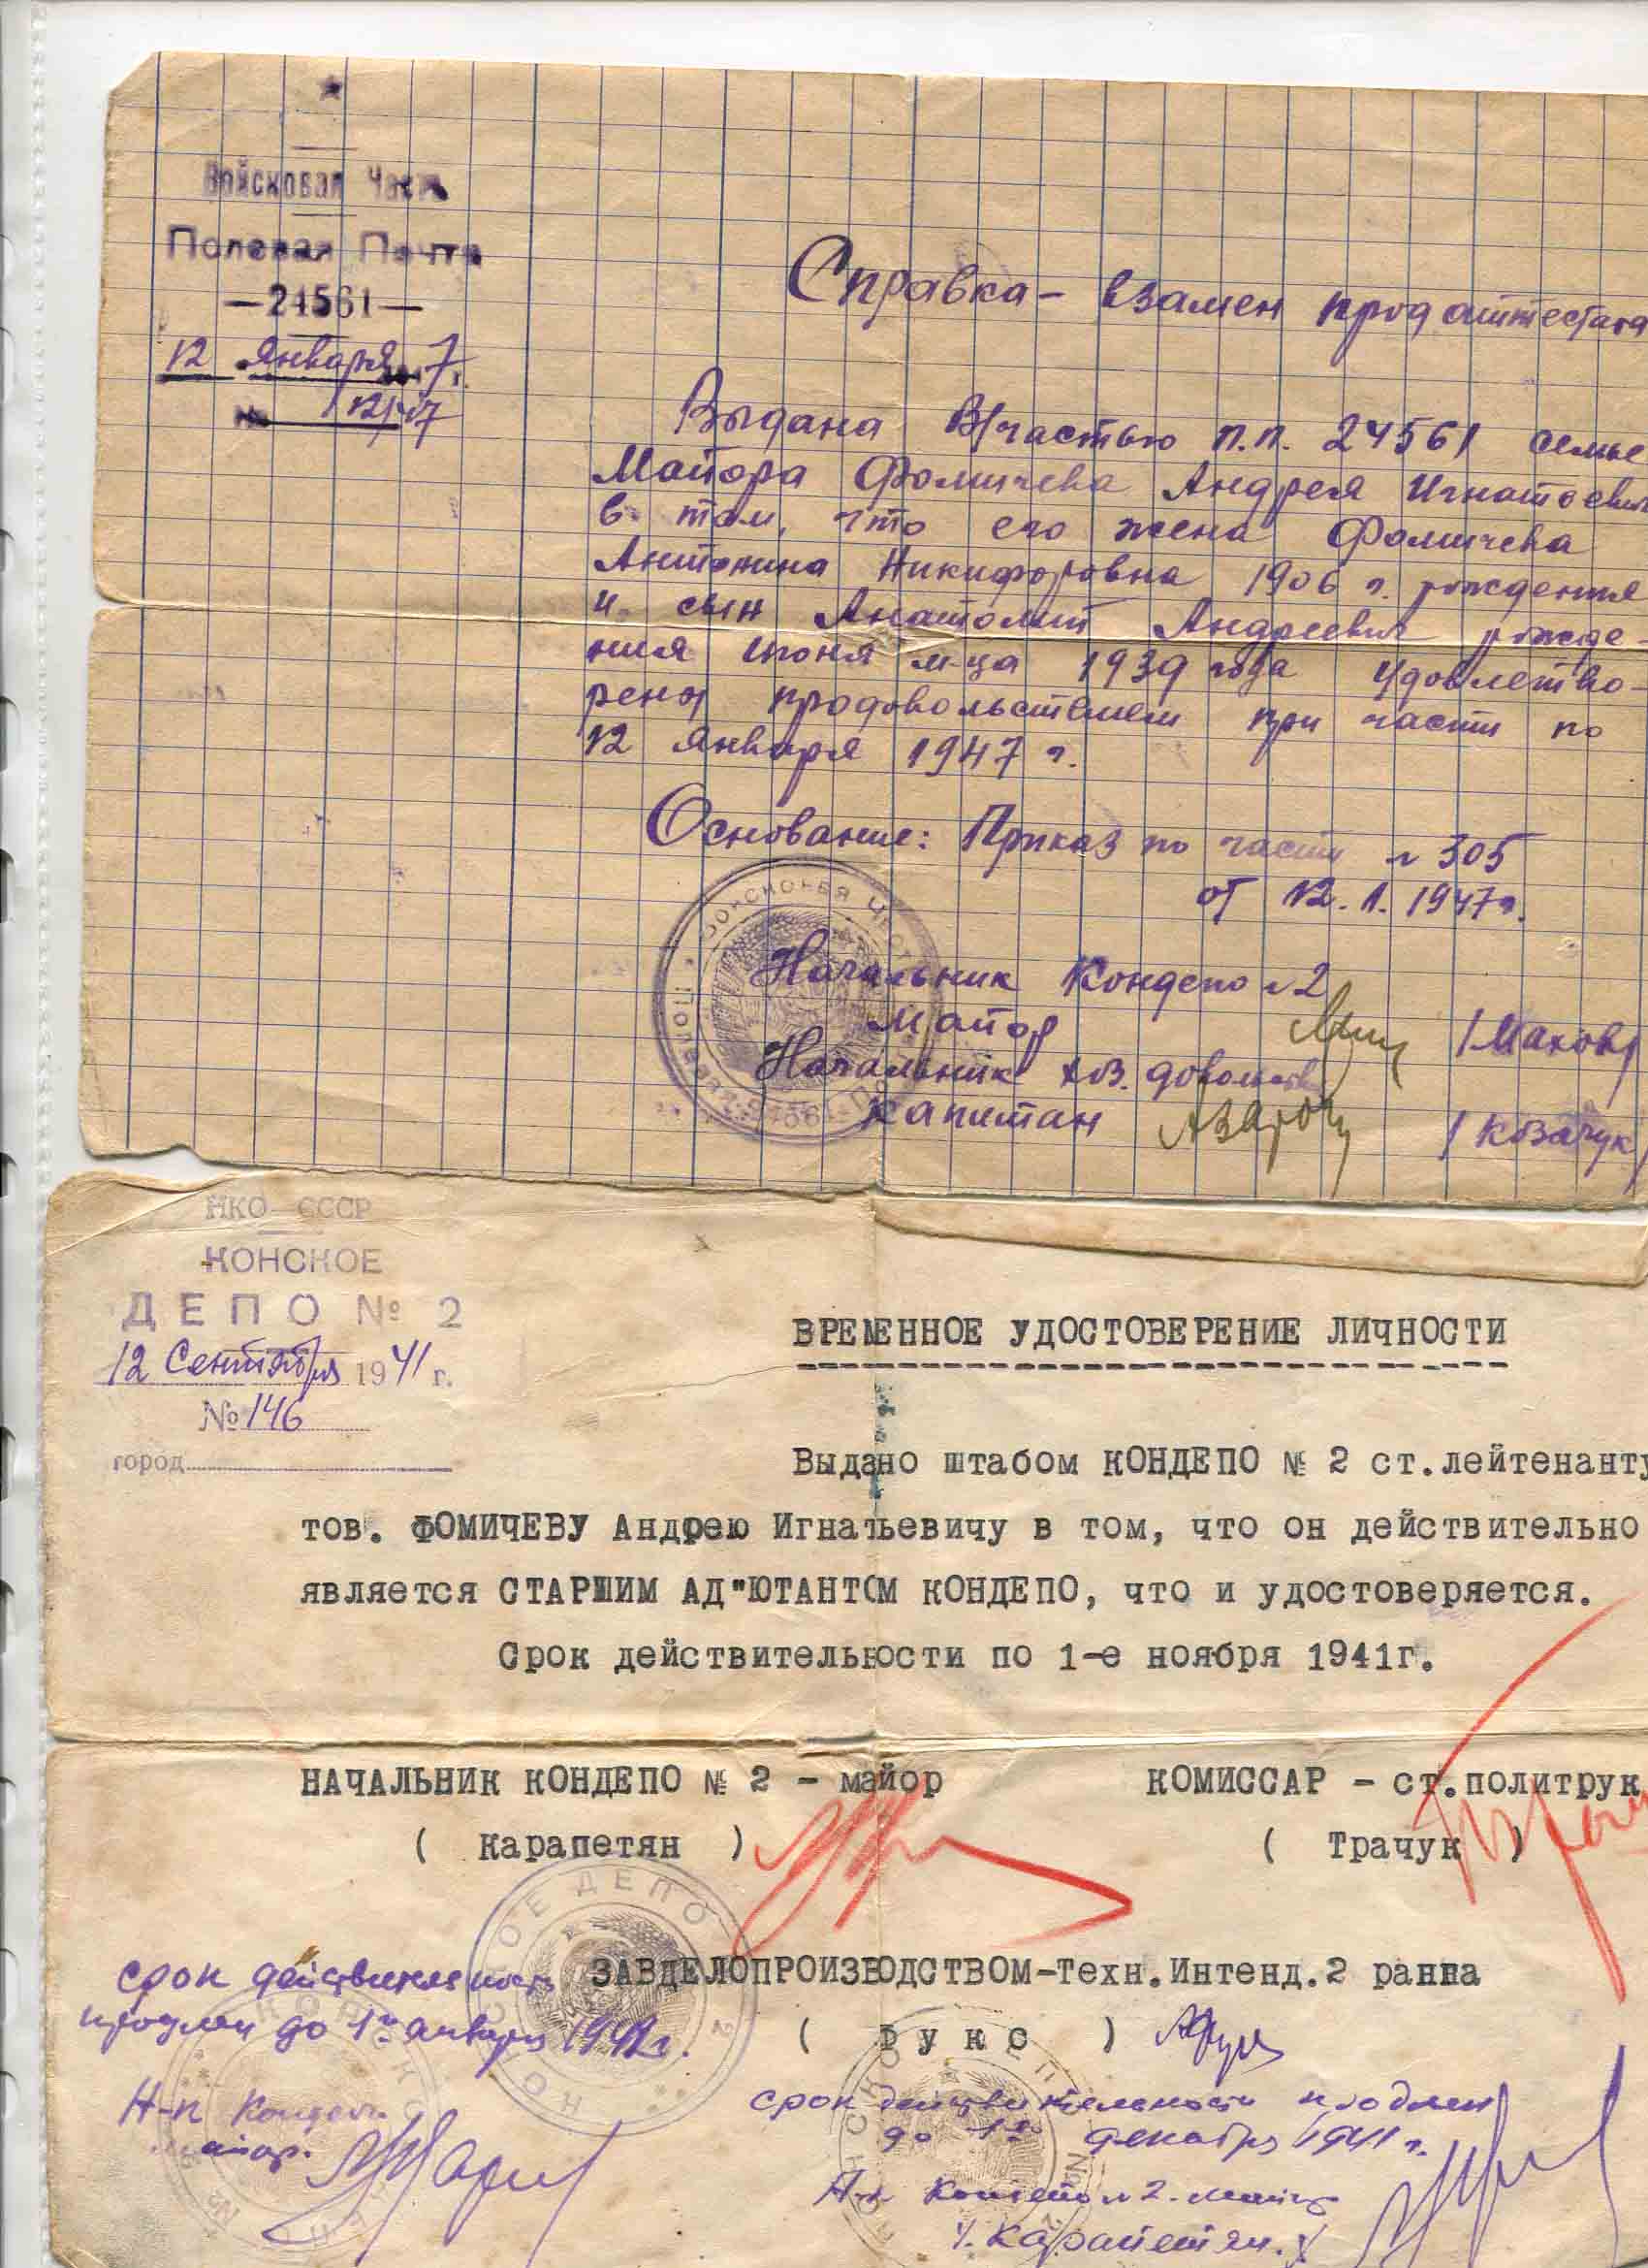 Войсковая Часть
Полевая Почта
—24561—
12 января 47 г.
№ 12/47
Справка - взамен продаттестата
Выдана В/частью п.п. 24561 семье
Майора Фомичева Андрея Игнатьевич
в том, что его жена Фомичева
Антонина Никифоровна 1906 г. рождения
и сын Анатолий Андреевич рожде-
ния июня м-ца 1939 года удовлетво-
рены продовольствием при части по
12 января 1947 г.
Основание: Приказ по части № 305
от 12.1.1947г.
Начальник Кондепо №2
Майор /Махов/
Начальник хоз. довольствия
Капитан /Козачук/
НКО СССР
КОНСКОЕ
ДЕПО № 2
12 Сентября 1941 г.
№ 146
город
ВРЕМЕННОЕ УДОСТОВЕРЕНИЕ ЛИЧНОСТИ
Выдано штабом КОНДЕПО № 2 ст.лейтенанту
тов. ФОМИЧЕВУ Андрею Игнатьевичу в том, что он действительно
является СТАРШИМ АД"ЮТАНТОМ КОНДЕПО, что и удостоверяется.
Срок действительности по 1-е ноября 1941г.
НАЧАЛЬНИК КОНДЕПО № 2 - майор КОМИССАР - ст.политрук
( Карапетян ) ( Трачук )
КОНСКОЕ ДЕПО № 2
ЗАВДЕЛОПРОИЗВОДСТВОМ-Техн.Интенд.2 ранга
( Фукс )
срок действительность
продлен до 1го января 1942г.
Н-к Кондепо
майор.
срок действительности продлен
до 1го декабря 1941 г.
Н-к Кондепо №2 - майор
/. Карапетян. /